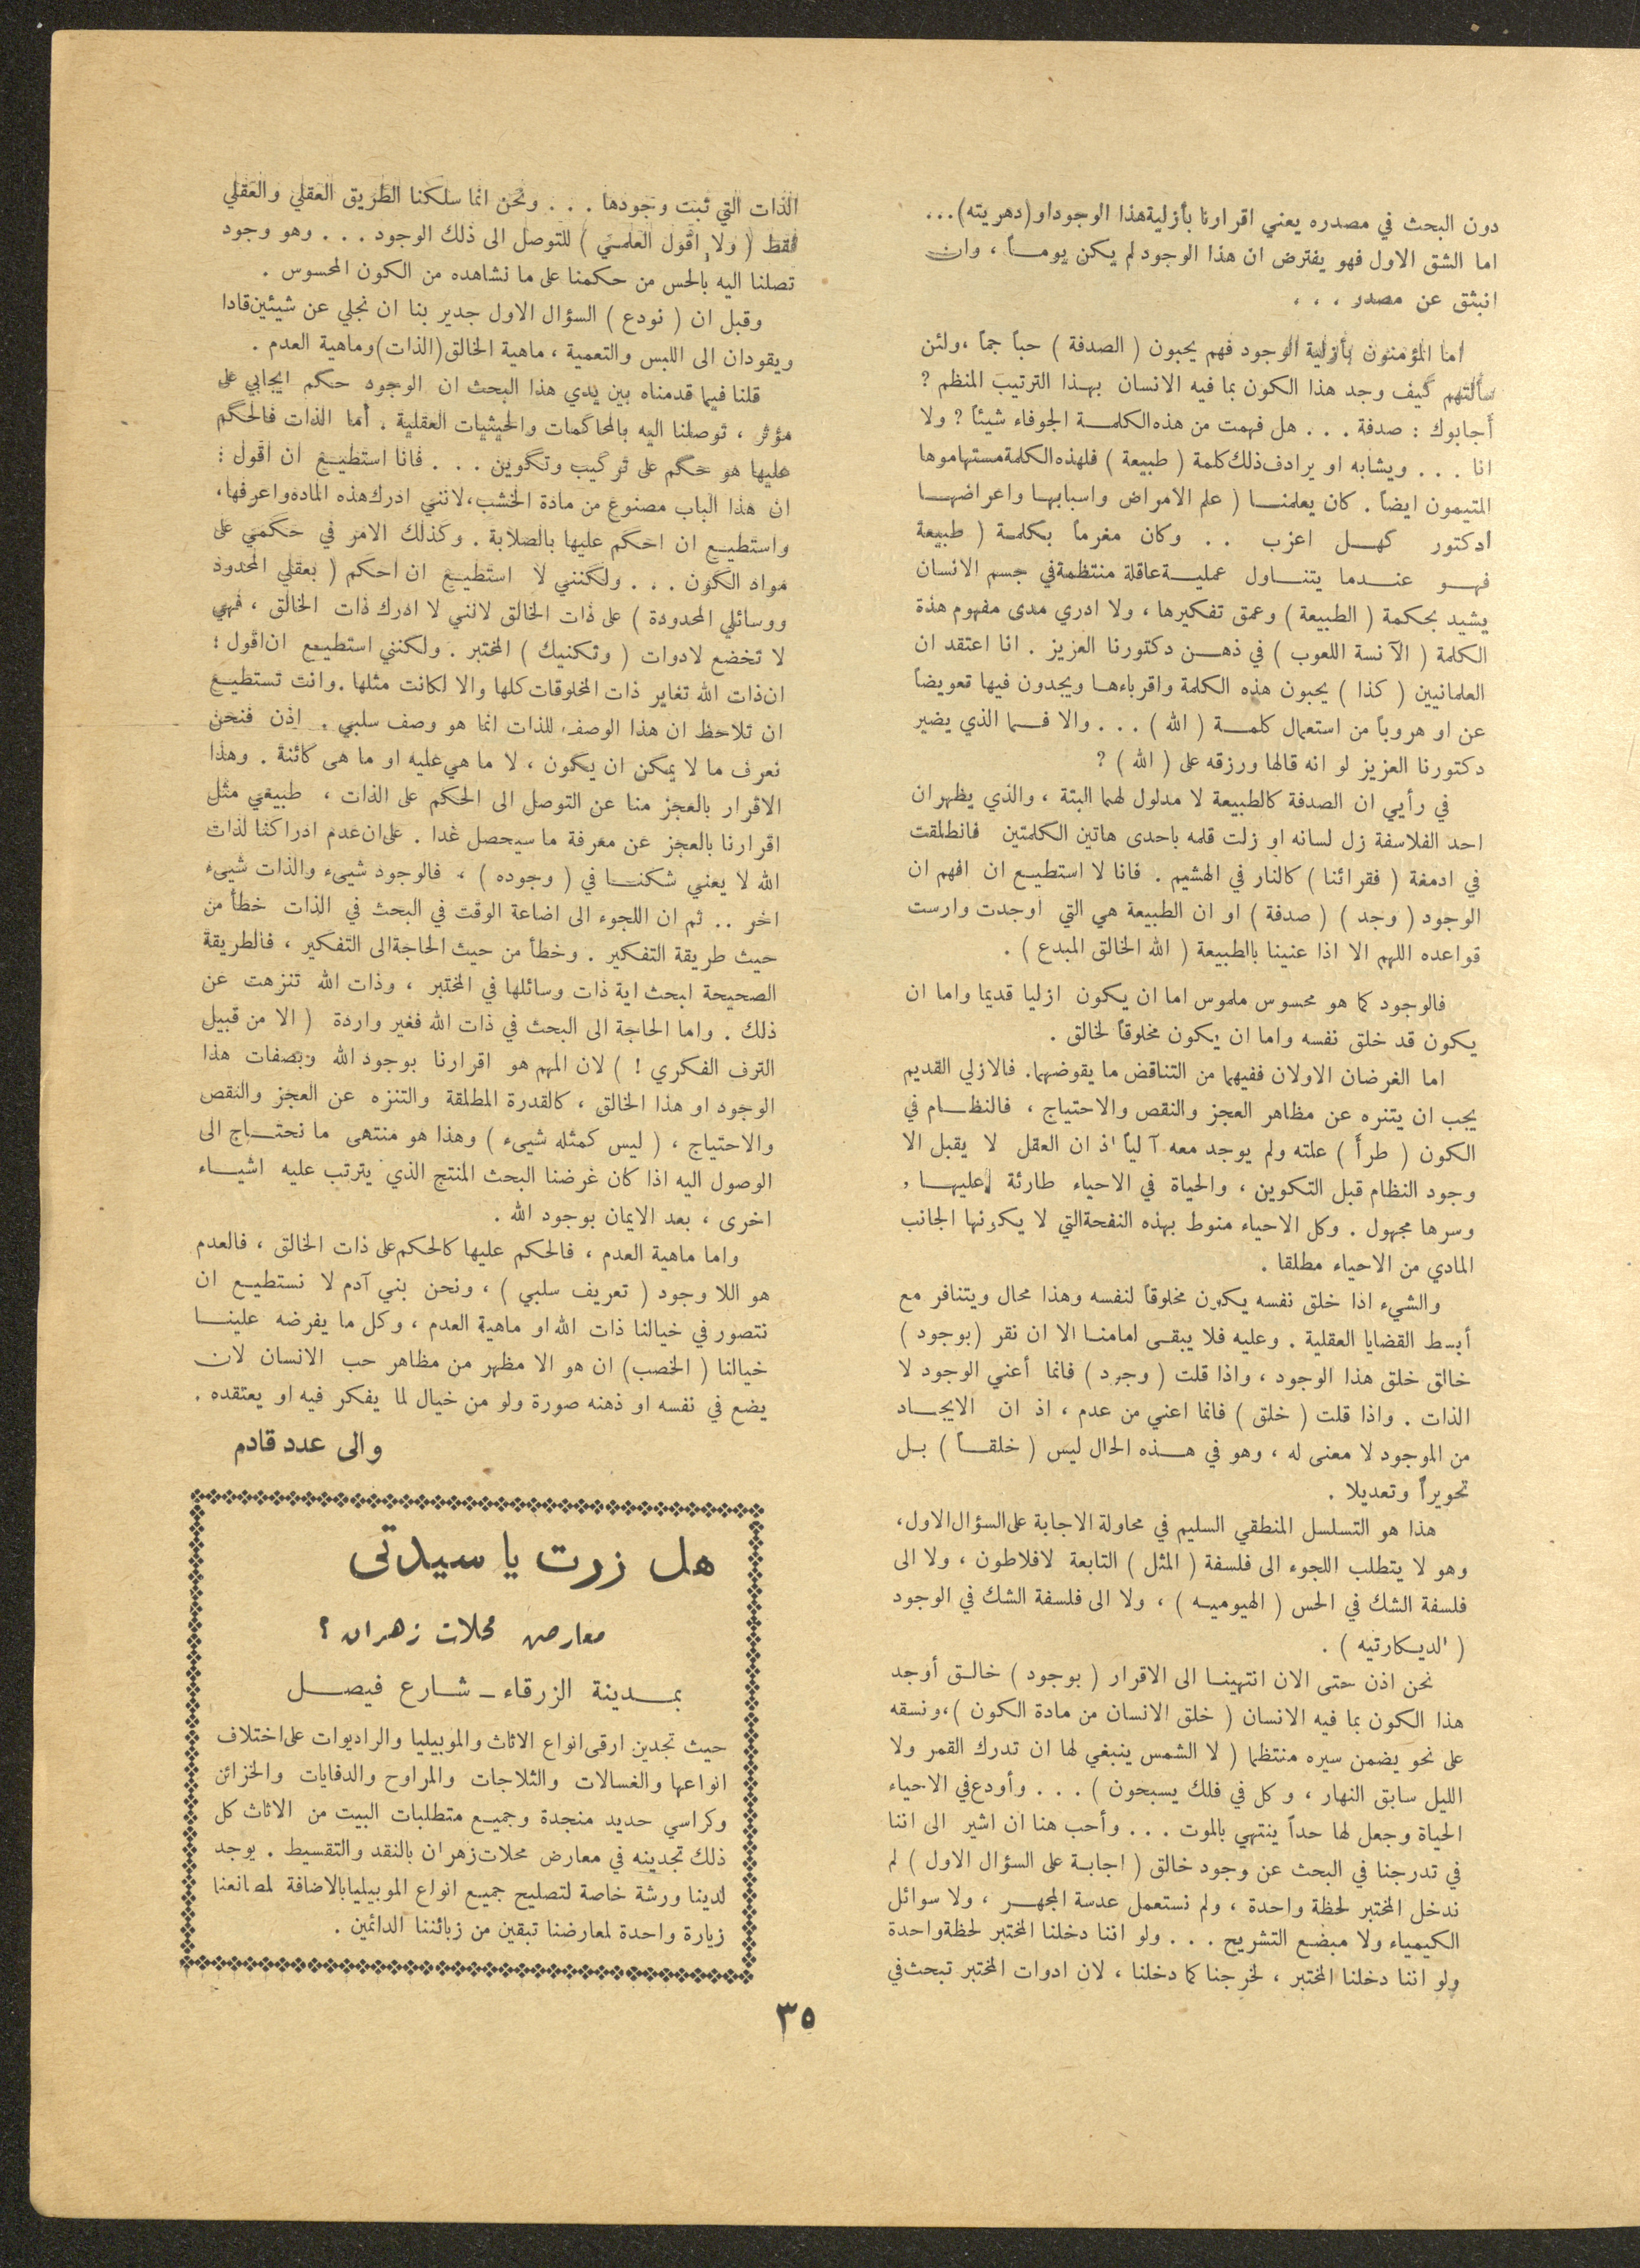 دون البحث في مصدره يعني اقرارنا بأزلية هذا الوجود او (دهريته)...
اما الشق الاول فهو يفترض ان هذا الوجود لم يكن يومـاً ، وان
انبثق عن مصدر . . .
اما المؤمنون بأزلية الوجود فهم يحبون ( الصدفة ) حباً جماً ، ولئن
سألتهم كيف وجد هذا الكون بما فيه الانسان بهـذا الترتيب المنظم ؟
أجابوك : صدفة . . . هل فهمت من هذه الكلمـة الجوفاء شيئاً ؟ ولا
انا . . . ويشابه او يرادف ذلك كلمة ( طبيعة ) فلهذه الكلمة مستهاموها
المتيمون ايضاً . كان يعلمنـا ( علم الامراض واسبابها واعراضهـا
دكتور كهـل اعزب . . وكان مغرماً بكلمة ( طبيعة
فهـو عنـدما يتنـاول عمليـة عاقلة منتظمة في جسم الانسان
يشيد بحكمة ( الطبيعة ) وعمق تفكيرها ، ولا ادري مدى مفهوم هذة
الكلمة ( الآنسة اللعوب ) في ذهـن دكتورنا العزيز . انا اعتقد ان
العلمانيين ( كذا ) يحبون هذه الكلمة واقرباءهـا ويجدون فيها تعويضاً
عن او هروباً من استعمال كلمـة ( الله ) . . . والا فـما الذي يضير
دكتورنا العزيز لو انه قالها ورزقه على ( الله ) ؟
في رأيي ان الصدفة كالطبيعة لا مدلول لهما البتة ، والذي يظهر ان
احد الفلاسفة زل لسانه او زلت قلمه باحدى هاتين الكلمتين فانطلقت
في ادمغة ( فقرائنا ) كالنار في الهشيم . فانا لا استطيـع ان افهم ان
الوجود ( وجد ) ( صدفة ) او ان الطبيعة هي التي اوجدت وارست
قواعده اللهم الا اذا عنينا بالطبيعة ( الله الخالق المبدع ) .
فالوجود كما هو محسوس ملموس اما ان يكون ازليا قديما واما ان
يكون قد خلق نفسه واما ان يكون مخلوقاً لخالق .
اما الغرضان الاولان ففيهما من التناقض ما يقوضهما. فالازلي القديم
يجب ان يتنره عن مظاهر العجز والنقص والاحتياج ، فالنظـام في
الكون ( طرأ ) علته ولم يوجد معه آلياً اذ ان العقل لا يقبل الا
وجود النظام قبل التكوين ، والحياة في الاحياء طارئة عليهـا ،
وسرها مجهول . وكل الاحياء منوط بهذه النفحة التي لا يكونها الجانب
المادي من الاحياء مطلقا .
والشيء اذا خلق نفسه يكون مخلوقاً لنفسه وهذا محال ويتنافر مع
أبسط القضايا العقلية . وعليه فلا يبقـى امامنـا الا ان نقر (بوجود )
خالق خلق هذا الوجود ، واذا قلت ( وجود ) فانما أعني الوجود لا
الذات . واذا قلت ( خلق ) فانما اعني من عدم ، اذ ان الايجـاد
من الموجود لا معنى له ، وهو في هـذه الحال ليس ( خلقـاً ) بـل
تحويراً وتعديلا .
هذا هو التسلسل المنطقي السليم في محاولة الاجابة على السؤال الاول،
وهو لا يتطلب اللجوء الى فلسفة ( المثل ) التابعة لافلاطون ، ولا الى
فلسفة الشك في الحس ( الهيوميـه ) ، ولا الى فلسفة الشك في الوجود
( الديكارتيه ) .
نحن اذن حتى الان انتهينـا الى الاقرار ( بوجود ) خالـق أوجد
هذا الكون بما فيه الانسان ( خلق الانسان من مادة الكون )، ونسقه
على نحو يضمن سيره منتظما ( لا الشمس ينبغي لها ان تدرك القمر ولا
الليل سابق النهار ، وكل في فلك يسبحون ) . . . وأودع في الاحياء
الحياة وجعل لها حداً ينتهي بالموت . . . وأحب هنا ان اشير الى اننا
في تدرجنا في البحث عن وجود خالق ( اجابـة على السؤال الاول ) لم
ندخل المختبر لحظة واحدة ، ولم نستعمل عدسة المجهـر ، ولا سوائل
الكيمياء ولا مبضـع التشريح . . . ولو اننا دخلنا المختبر لحظة واحدة
ولو اننا دخلنا المختبر ، لخرجنا كما دخلنا ، لان ادوات المختبر تبحث في
الذات التي ثبت وجودها . . . ونحن انما سلكنا الطريق العقلي والعقلي
فقط ( ولا اقول العلمي ) للتوصل الى ذلك الوجود . . . وهو وجود
تصلنا اليه بالحس من حكمنا على ما نشاهده من الكون المحسوس .
وقبل ان ( نودع ) السؤال الاول جدير بنا ان نجلي عن شيئين قادا
ويقودان الى اللبس والتعمية ، ماهية الخالق (الذات) وماهية العدم .
قلنا فيما قدمناه بين يدي هذا البحث ان الوجود حكم ايجابي على
مؤثر ، توصلنا اليه بالمحاكمات والحيثيات العقلية . أما الذات فالحكم
عليها هو حكم على تركيب وتكوين . . . فانا استطيـع ان اقول :
ان هذا الباب مصنوع من مادة الخشب، لانني ادرك هذه الماده واعرفها،
واستطيـع ان احكم عليها بالصلابة . وكذلك الامر في حكمي على
مواد الكون . . . ولكنني لا استطيـع ان احكم ( بعقلي المحدود
ووسائلي المحدودة ) على ذات الخالق لانني لا ادرك ذات الخالق ، فهي
لا تخضع لادوات ( وتكنيك ) المختبر . ولكنني استطيـع ان اقول ؛
ان ذات الله تغاير ذات المخلوقات كلها والا لكانت مثلها . وانت تستطيـع
ان تلاحظ ان هذا الوصف للذات انما هو وصف سلبي . اذن فنحن
نعرف ما لا يمكن ان يكون ، لا ما هي عليه او ما هى كائنة . وهذا
الاقرار بالعجز منا عن التوصل الى الحكم على الذات ، طبيعي مثل
اقرارنا بالعجز عن معرفة ما سيحصل غدا . على ان عدم ادراكنا لذات
الله لا يعني شكنـا في ( وجوده ) ، فالوجود شيىء والذات شيىء
اخر .. ثم ان اللجوء الى اضاعة الوقت في البحث في الذات خطأ من
حيث طريقة التفكير . وخطأ من حيث الحاجة الى التفكير ، فالطريقة
الصحيحة لبحث اية ذات وسائلها في المختبر ، وذات الله تنزهت عن
ذلك . واما الحاجة الى البحث في ذات الله فغير واردة ( الا من قبيل
الترف الفكري ! ) لان المهم هو اقرارنا بوجود الله وبصفات هذا
الوجود او هذا الخالق ، كالقدرة المطلقة والتنزه عن العجز والنقص
والاحتياج ، ( ليس كمثله شيىء ) وهذا هو منتهى ما نحتـاج الى
الوصول اليه اذا كان غرضنا البحث المنتج الذي يترتب عليه اشيـاء
اخرى ، بعد الايمان بوجود الله .
واما ماهية العدم ، فالحكم عليها كالحكم على ذات الخالق ، فالعدم
هو اللا وجود ( تعريف سلبي ) ، ونحن بني آدم لا نستطيـع ان
نتصور في خيالنا ذات الله او ماهية العدم ، وكل ما يفرضه علينـا
خيالنا ( الخصب) ان هو الا مظهر من مظاهر حب الانسان لان
يضع في نفسه او ذهنه صورة ولو من خيال لما يفكر فيه او يعتقده .
والى عدد قادم
هل زرت يا سيدتى
معارض محلات زهران ؟
بمـدينة الزرقاء ـ شـارع فيصـل
حيث تجدين ارقى انواع الاثاث والموبيليا والراديوات على اختلاف
انواعها والغسالات والثلاجات والمراوح والدفايات والخزائن
وكراسي حديد منجدة وجميـع متطلبات البيت من الاثاث كل
ذلك تجدينه في معارض محلات زهران بالنقد والتقسيط . يوجد
لدينا ورشة خاصة لتصليح جميـع انواع الموبيليا بالاضافة لمصانعنا
زيارة واحدة لمعارضنا تبقين من زبائننا الدائمين .
٣٥